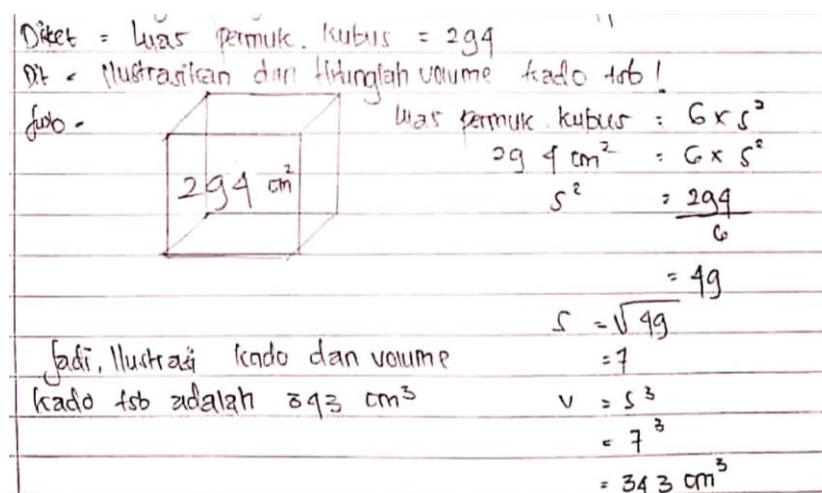 Diket = Luas permuk. kubus = 294
Dit = Ilustrasikan dan Hitunglah volume kado tsb!
Jwb =
294 cm²
Luas permuk. kubus = 6 x s²
294 cm² = 6 x s²
s² = 294
6
= 49
s = √49
= 7
v = s³
= 7³
= 343 cm³
Jadi, Ilustrasi kado dan volume
kado tsb adalah 343 cm³